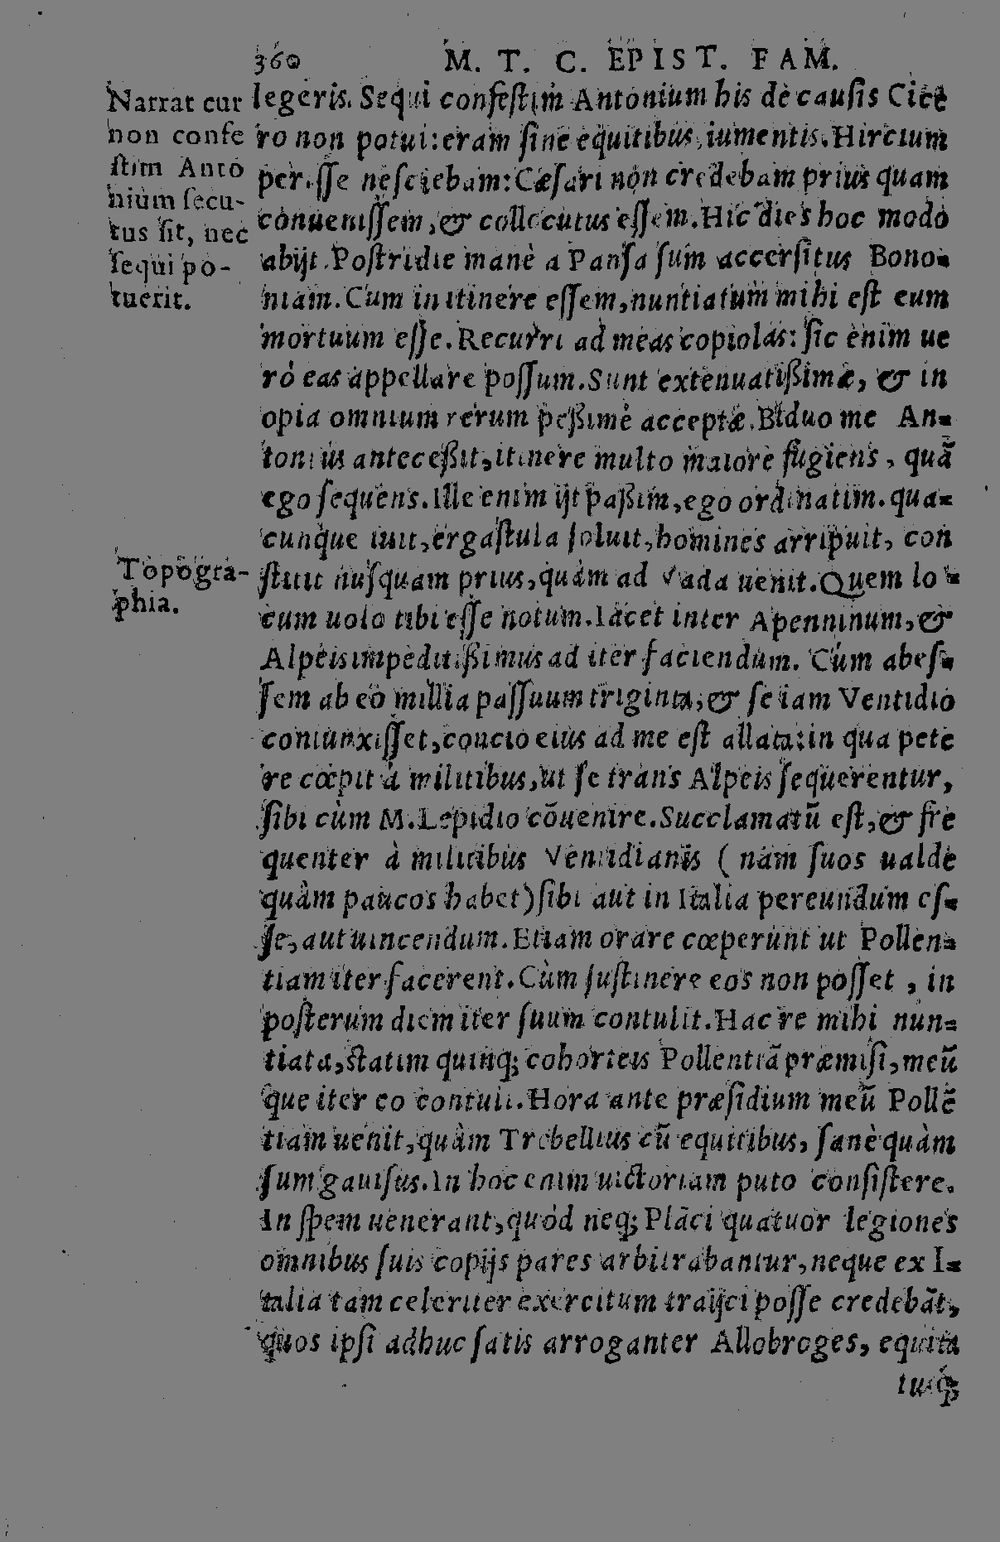 360 M. T. C. EPIST. FAM.
Narrat cur
non confe
stim Anto
nium secu-
tus sit, nec
sequi po-
tuerit.
legeris. Sequi confestim Antonium his de causis Cice
ro non potui: eram sine equitibus, iumentis. Hircium
perisse nesciebam: Cæsari non credebam prius quam
conuenissem, & collocutus essem. Hic dies hoc modo
abijt. Postridie manè a Pansa sum accersitus Bono-
niam. Cum in itinere essem, nuntiatum mihi est eum
mortuum esse. Recurri ad meas copiolas: sic enim ue
rò eas appellare possum. Sunt extenuatißimæ, & in
opia omnium rerum peßimè acceptæ. Biduo me An-
tonius anteceßit, itinere multo maiore fugiens, quā
ego sequens. Ille enim ijt paßim, ego ordinatim. qua-
cunque iuit, ergastula soluit, homines arripuit, con
stitit nusquam prius, quàm ad Vada uenit. Quem lo-
Topogra-
phia.
cum uolo tibi esse notum. Iacet inter Apenninum, &
Alpeis impeditißimus ad iter faciendum. Cum abes-
sem ab eo millia passuum triginta, & se iam Ventidio
coniunxisset, concio eius ad me est allata: in qua pete
re cœpit à militibus, ut se trans Alpeis sequerentur,
sibi cùm M. Lepidio cōuenire. Succlamatū est, & fre
quenter à militibus Ventidianis (nam suos ualde
quàm paucos habet) sibi aut in Italia pereundum es-
se, aut uincendum. Etiam orare cœperunt ut Pollen-
tiam iter facerent. Cùm sustinere eos non posset, in
posterum diem iter suum contulit. Hac re mihi nun-
tiata, statim quinq; cohorteis Pollentiā præmisi, meū
que iter eo contuli. Hora ante præsidium meū Pollē
tiam uenit, quàm Trebellius cū equitibus, sanè quàm
sum gauisus. In hoc enim uictoriam puto consistere.
In spem uenerant, quòd neq; Plāci quatuor legiones
omnibus suis copijs pares arbitrabantur, neque ex I-
talia tam celeriter exercitum traijci posse credebāt,
quos ipsi adhuc satis arroganter Allobroges, equita
tusq;